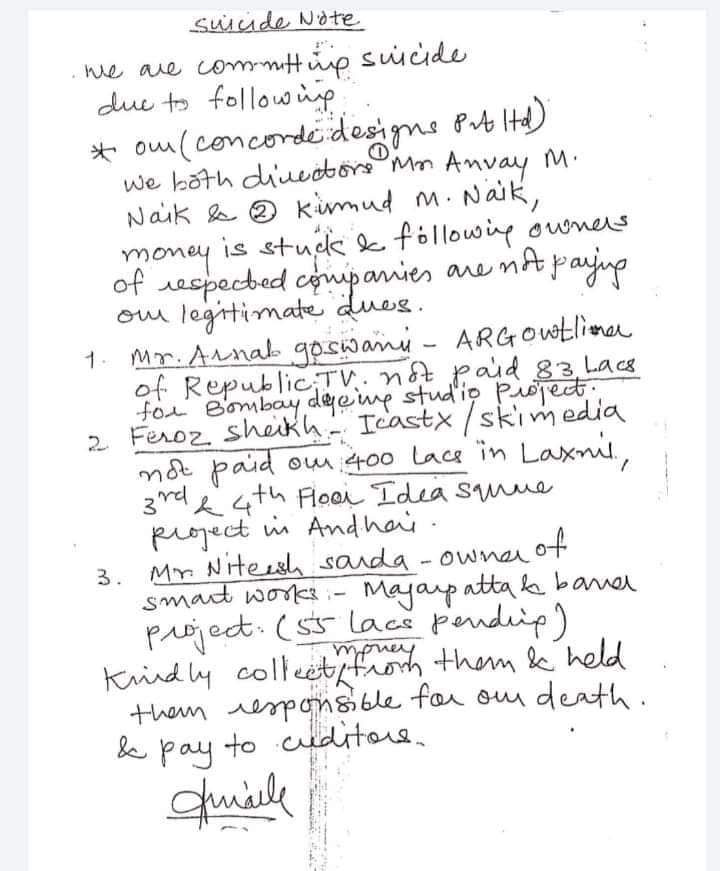 Suicide Note
. we are committing suicide
due to following
* our (concorde designs Pvt ltd)
we both directors ① Mr Anvay M.
Naik & ② Kumud M. Naik,
money is stuck & following owners
of respected companies are not paying
our legitimate dues.
1. Mr. Arnab goswami - ARG Outlimer
of Republic TV. not paid 83 Lacs
for Bombay studio Project.
2 Feroz Sheikh - Icastx / skimedia
not paid our 400 Lacs in Laxmi,
3rd & 4th Floor Idea Square
project in Andheri.
3. Mr Niteesh sarda - owner of
smart works :- Magarpatta & baner
project. (55 lacs pending)
Kindly collect money from them & held
them responsible for our death.
& pay to creditors.